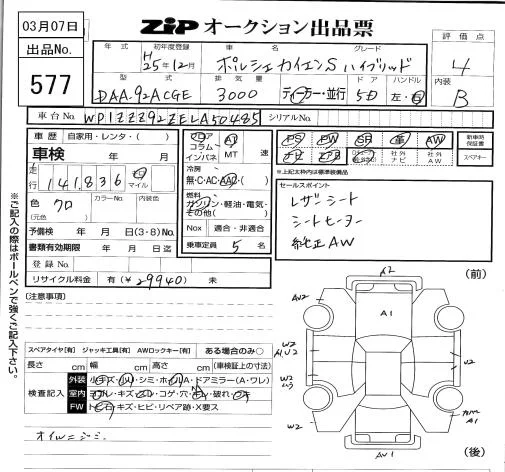 03月07日
ZIP オークション出品票
出品No.
577
年式 初年度登録 車名 グレード
H25年12月 ポルシェカイエンS ハイブリッド
評価点
4
型式 排気量 ドア ハンドル
DAA-92ACGE 3000 ディーラー・並行 5D 左・右
内装
B
車台No. WP1ZZZ92ZELA50485 シリアルNo.
車歴 自家用・レンタ・( )
車検 年 月
走行 141,836 マイル
色 クロ カラーNo. 内装色
(元色)
予備検 年 月 日(3・8)Mo.
書類有効期限 年 月 日迄
登録No.
リサイクル料金 有(¥29940) 未
フロア AT
コラム
インパネ MT 速
冷房
無・C・AC・AAC・( )
燃料
ガソリン・軽油・電気・
その他( )
Nox 適合・非適合
乗車定員 5名
PS PW SR 革 AW
ナビ TV AB 社外ナビ 社外AW
新車時保証書
スペアキー
*上記太枠内は標準装備品
セールスポイント
レザーシート
シートヒーター
純正AW
※ご記入の際はボールペンで強くご記入下さい。
[注意事項]
スペアタイヤ[有] ジャッキ工具[有] AWロックキー[有] ある場合のみ○
長さ cm 幅 cm 高さ cm (車検証上の寸法)
検査記入
外装 小キズ・小凹・シミ・ホイールA・ドアミラー(A・ワレ)
室内 ヨゴレ・キズ・コゲ・穴・破れ・
FW トビ石・キズ・ヒビ・リペア跡・X要ス
オイルニジミ
(前)
A2
AU2
A1
W2
AU2
W2
U2
A1
W2
AU1
(後)